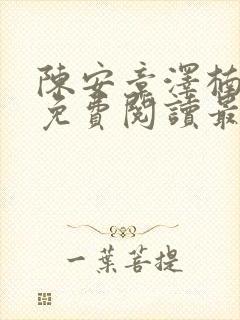 陳安章澤楠
免費閱讀最
一葉菩提